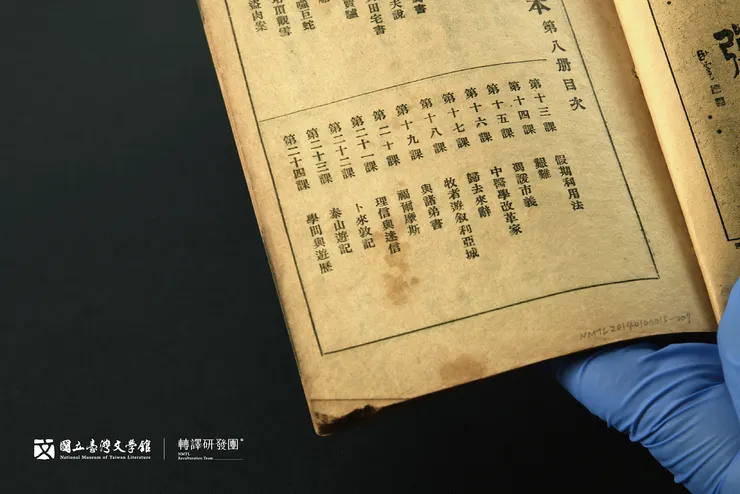 本第八册目次
書
夫說
田宅書
巨蛇
頂觀雪
肉案
第十三課 假期利用法
第十四課
第十五課 馮諼市義
第十六課 中醫學改革家
第十七課 歸去來辭
第十八課 牧者遊敘利亞城
第十九課 與諸弟書
第二十課 福爾摩斯
第二十一課 理信與迷信
第二十二課 卜來敦記
第二十三課 泰山遊記
第二十四課 學問與遊歷
NMTL20140100015-009
國立臺灣文學館
National Museum of Taiwan Literature
轉譯研發團
NMTL
Revolteration Team